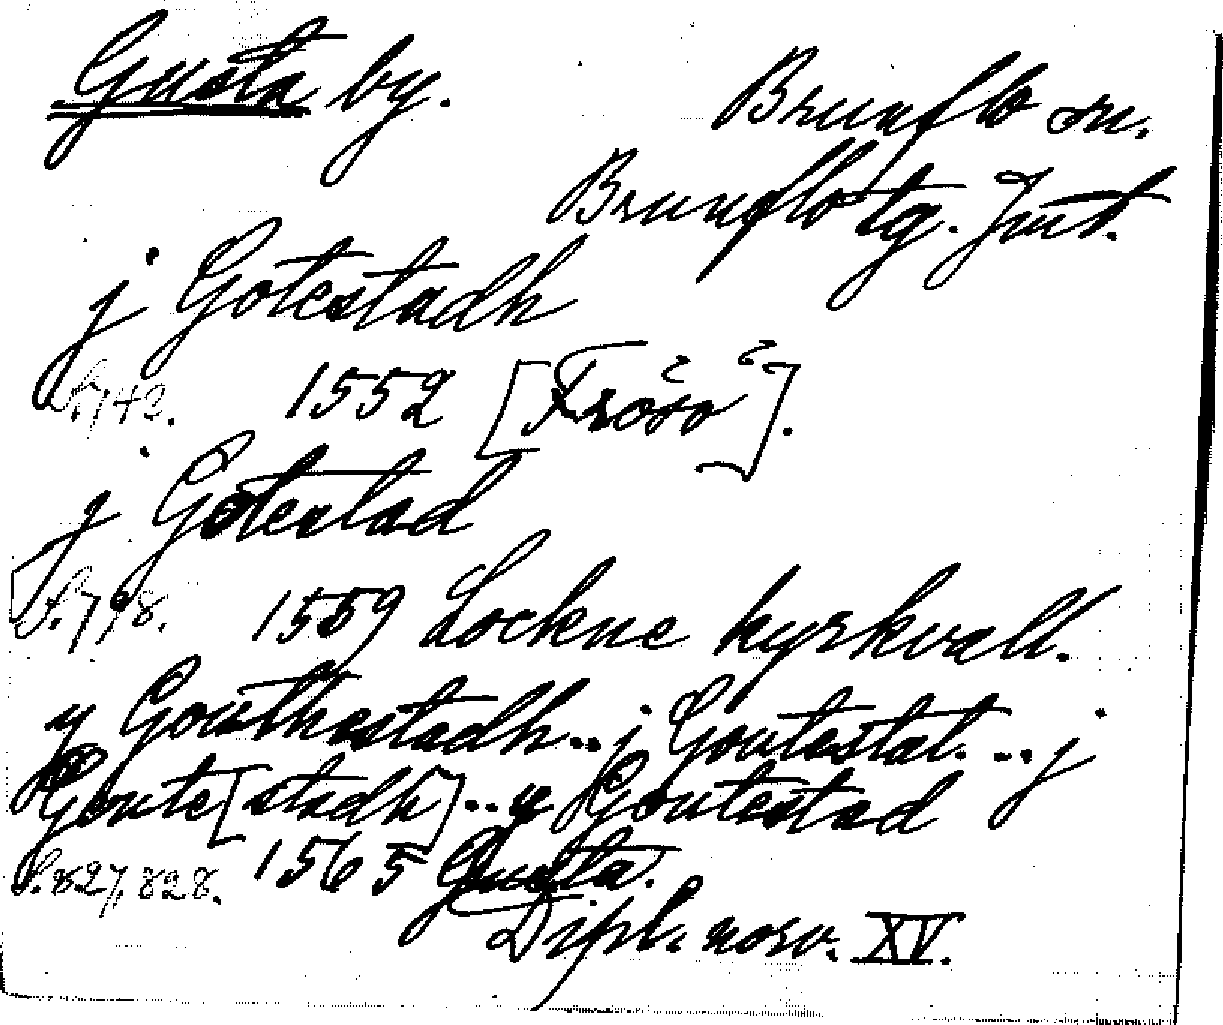 Gusta by.
Brunflo sn.
Brunflo tg. Jmt.
j Gotestadh
s. 742. 1552 [Frösö].
j Gotestad
s. 798. 1559 Lockne kyrkvall.
y Gowthestadh... j Goutestat... j
Goute[stadh]... y Goutestad
s. 827, 828. 1565 Gusta.
Dipl. norv. XV.